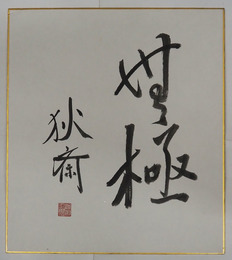 無極
狄斎